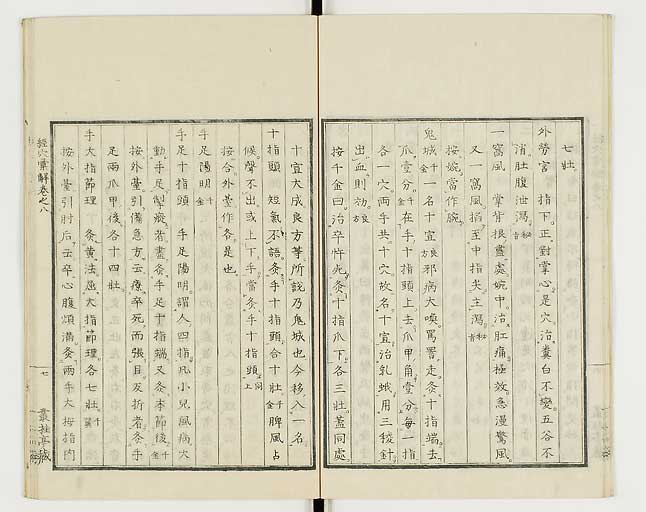 七壯
外勞宮 指下正對掌心是穴治糞白不變五谷不
消肚腹泄瀉秘旨
一窩風 掌背根盡處婉中治肛痛極效急漫驚風
又一窩風掐至中指尖主瀉秘旨
按婉當作腕
鬼城千金一名十宣良方邪病大喚罵詈走灸十指端去
爪壹分千金在手十指頭上去爪甲角壹分每一指
各一穴兩手共十穴故名十宣治乳蛾用三稜針
出血則効良方
按千金曰治卒忤死灸十指爪下各三壯蓋同處
十宣大成良方等所說乃鬼城也今移入一名
十指頭 短氣不語灸手十指頭合十壯千金脾風占
候聲不出或上下手當灸手十指頭同上
按合外臺作各是也
手足陽明千金
手足十指頭 手足陽明謂人四指凡小兒風病大
動手足掣瘲者盡灸手足十指端又灸本節後千金
按外臺引備急方云療卒死而張目反折者灸手
足兩爪甲後各十四壯
手大指節理 灸黃法屈大指節理各七壯千翼
按外臺引肘后云卒心腹煩滿灸兩手大拇指内
經穴彙解卷之八
七
叢桂亭藏